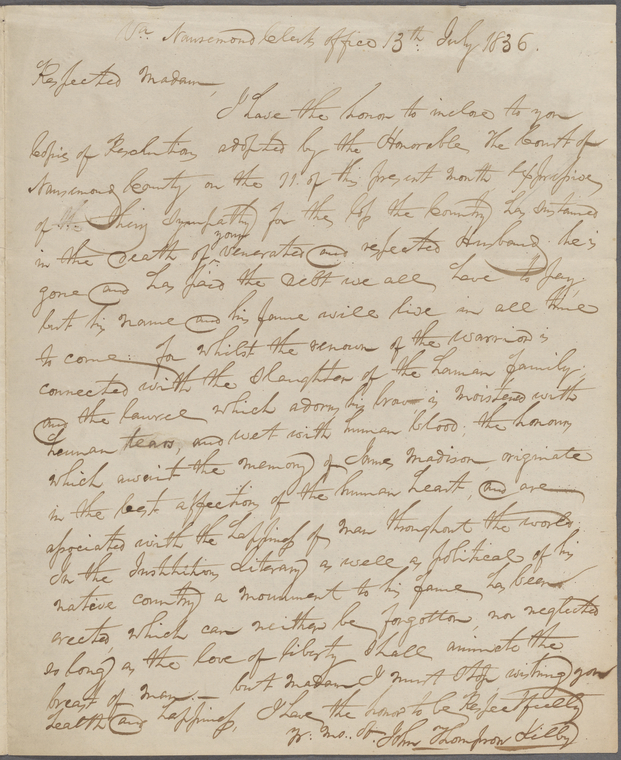 Va. Nansemond Clerks office 13th July 1836.
Respected Madam,
I have the honor to inclose to you
Copies of Resolutions adopted by the Honorable The Court of
Nansemond County on the 11. of this present month Expressive
of their sympathy for the loss the Country has sustained
in the death of your venerated and respected Husband. he is
gone and has paid the debt we all have to pay.
but his name and his fame will live in all time
to come. for whilst the renown of the warrior is
connected with the slaughter of the human family,
and the laurel which adorns his brow is moistened with
human tears, and wet with human blood; the honors
which await the memory of James Madison, originate
in the best affections of the human heart, and are
associated with the happiness of man throughout the world.
In the Institutions Literary as well as political of his
native country a monument to his fame has been
erected, which can neither be forgotten, nor neglected
so long as the love of liberty shall animate the
breast of man. - but Madam I must stop wishing you
health and happiness, I have the honor to be Respectfully
yr. mo. ob. John Thompson Lilby